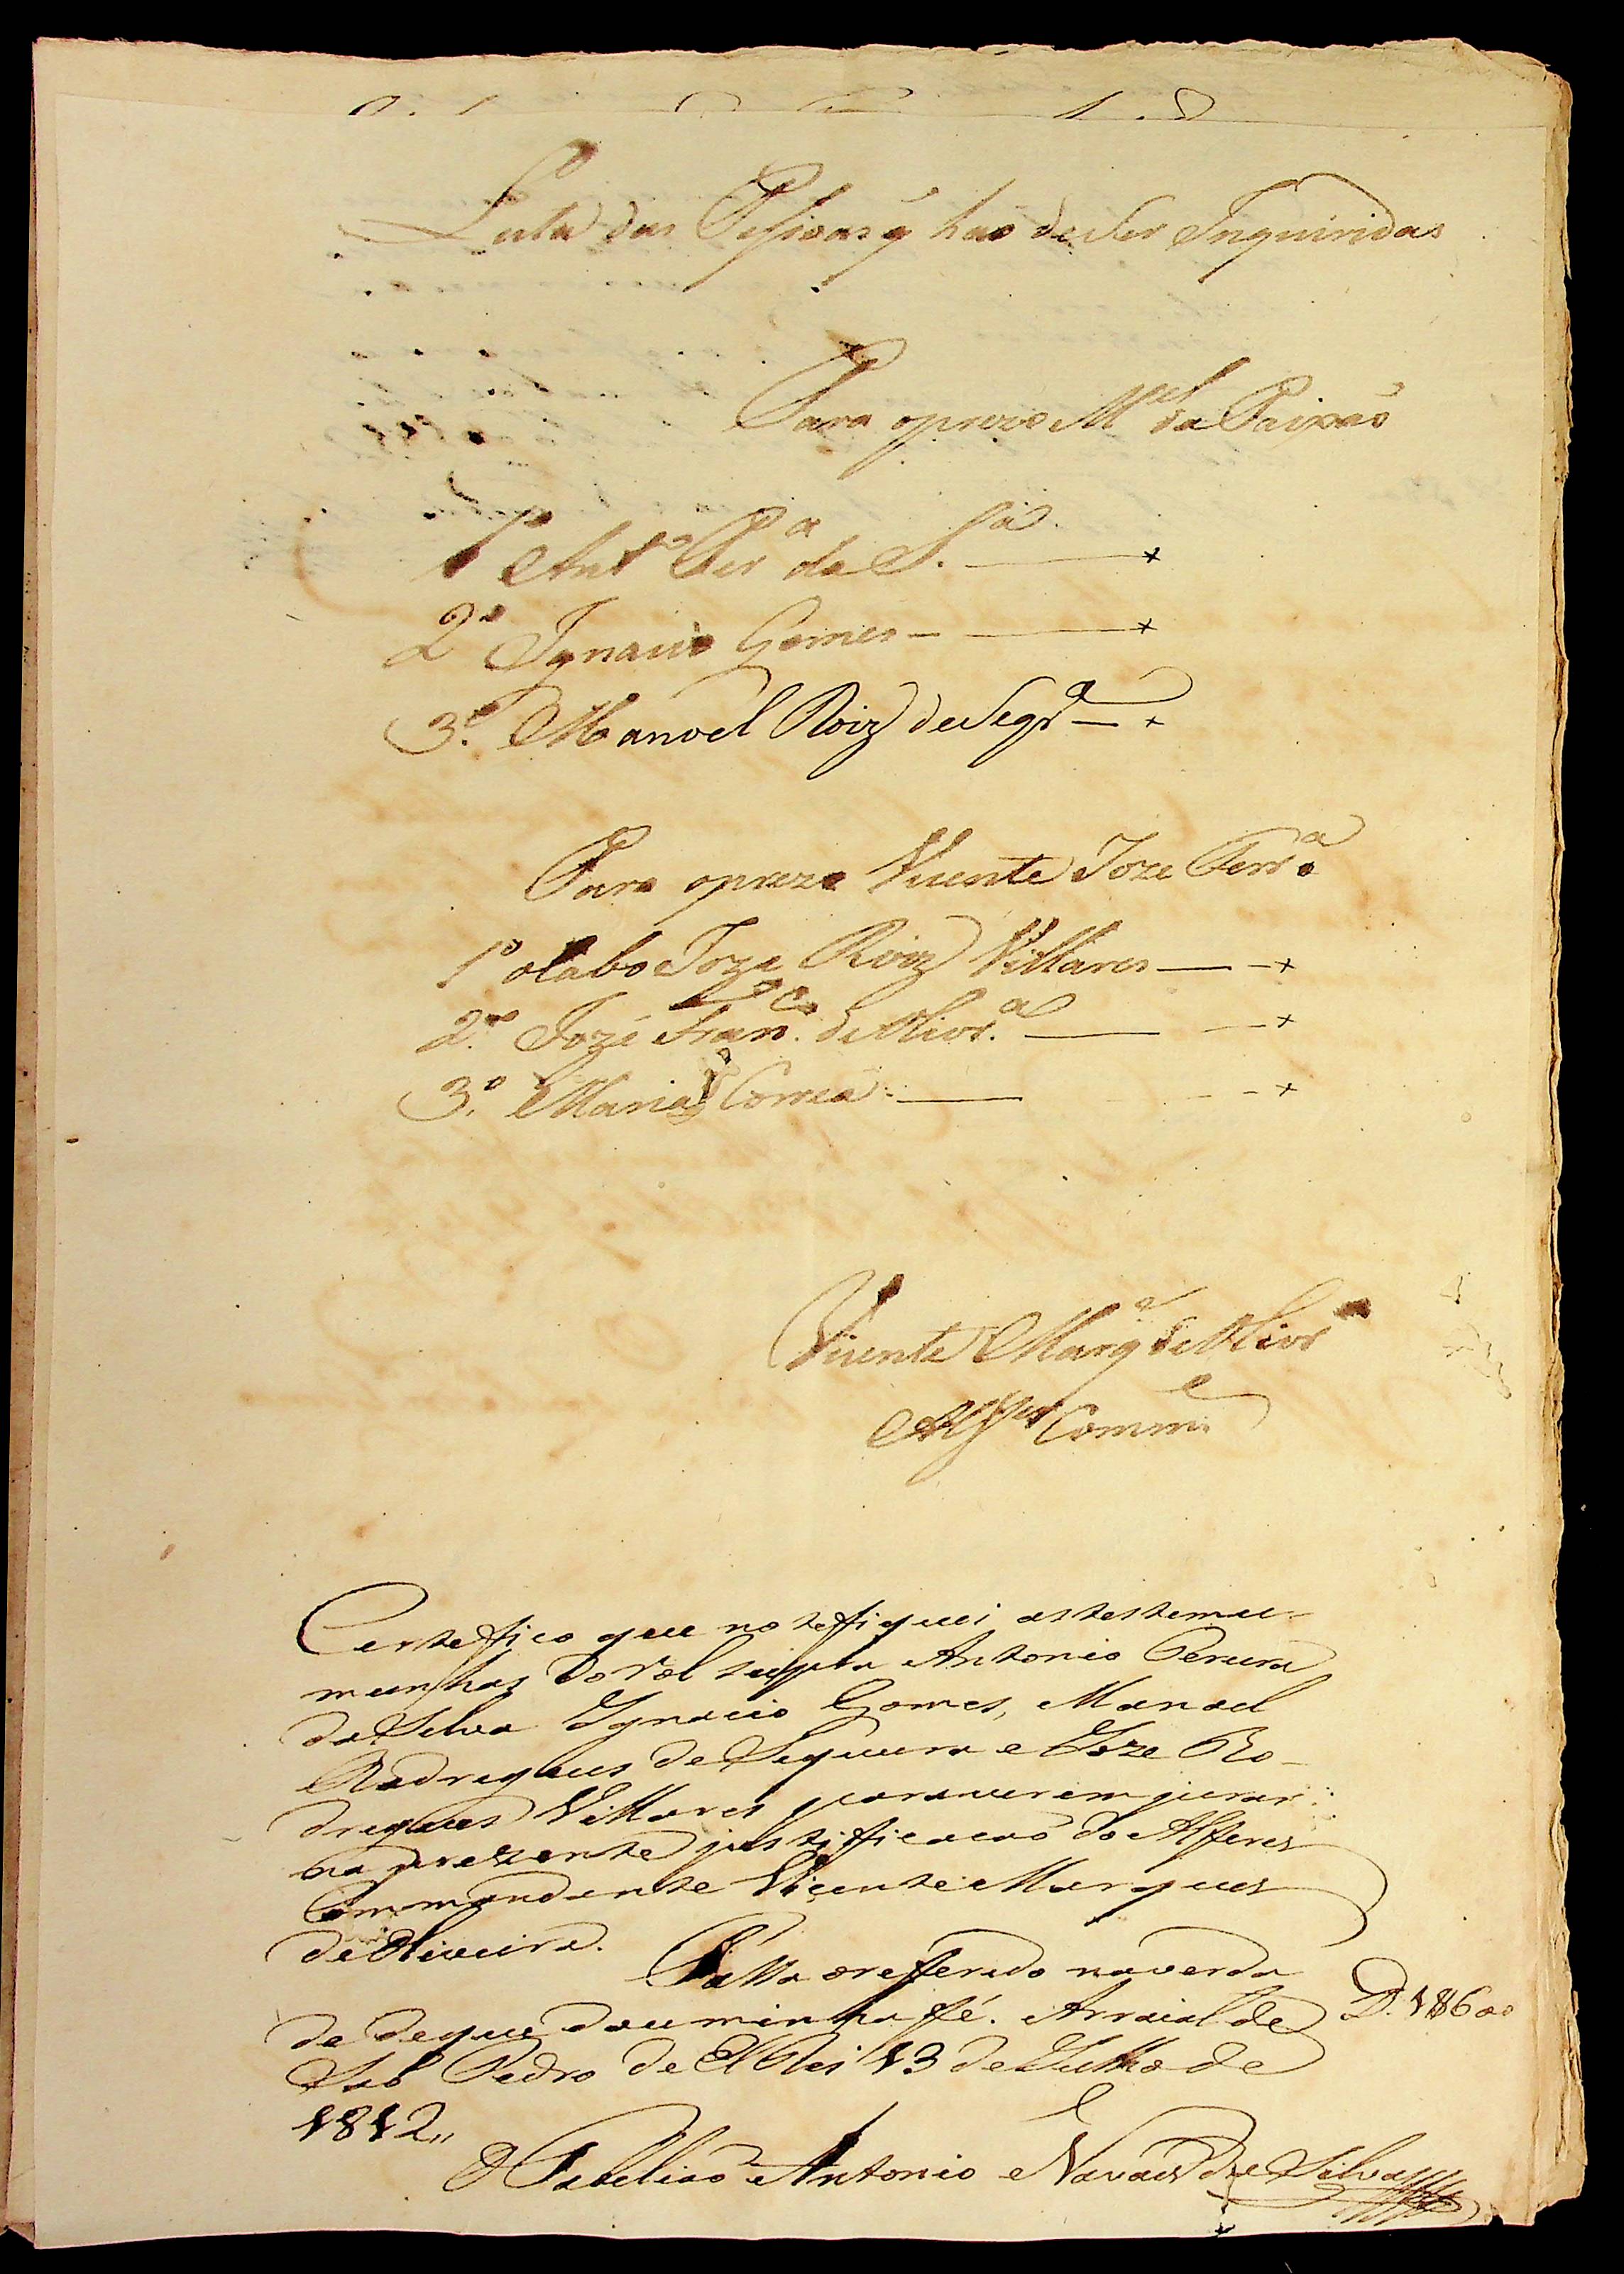 Lista das Pessoas q̃ haõ de Ser Inquiridas
Para oprezo M.el da Paixaõ
1º Ant.º Per.a da S.a
2º Ignacio Gomes
3º Manoel Roiz de Seqr.a
Para oprezo Vicente Joze Ferr.a
1º oCabo Joze Roiz Villares
2º Jozé Fran.co de Olivr.a
3º Maria Correa
Vicente Marq.s de Olivr.a
Alf.es Comm.e
Certeffico que noteffiquei astestemu-
munhas do rol supra Antonio Pereira
da Silva Ignacio Gomes, Manoel
Rodregues de Sequeira e Joze Ro-
dregues Villares paravirem jurar
na prezente justifficacaõ do Alferes
Commandante Vicente Marques
de Oliveira.
Passa orefferido naverda
de deque dou minha fé. Arraial de
Saõ Pedro de ElRei 13 de Julho de
1812,,
O Tabeliaõ Antonio Navaes da Silva